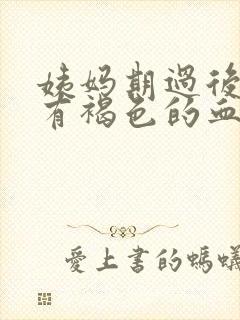 姨妈期過後
有褐色的血
愛上書的螞蟻